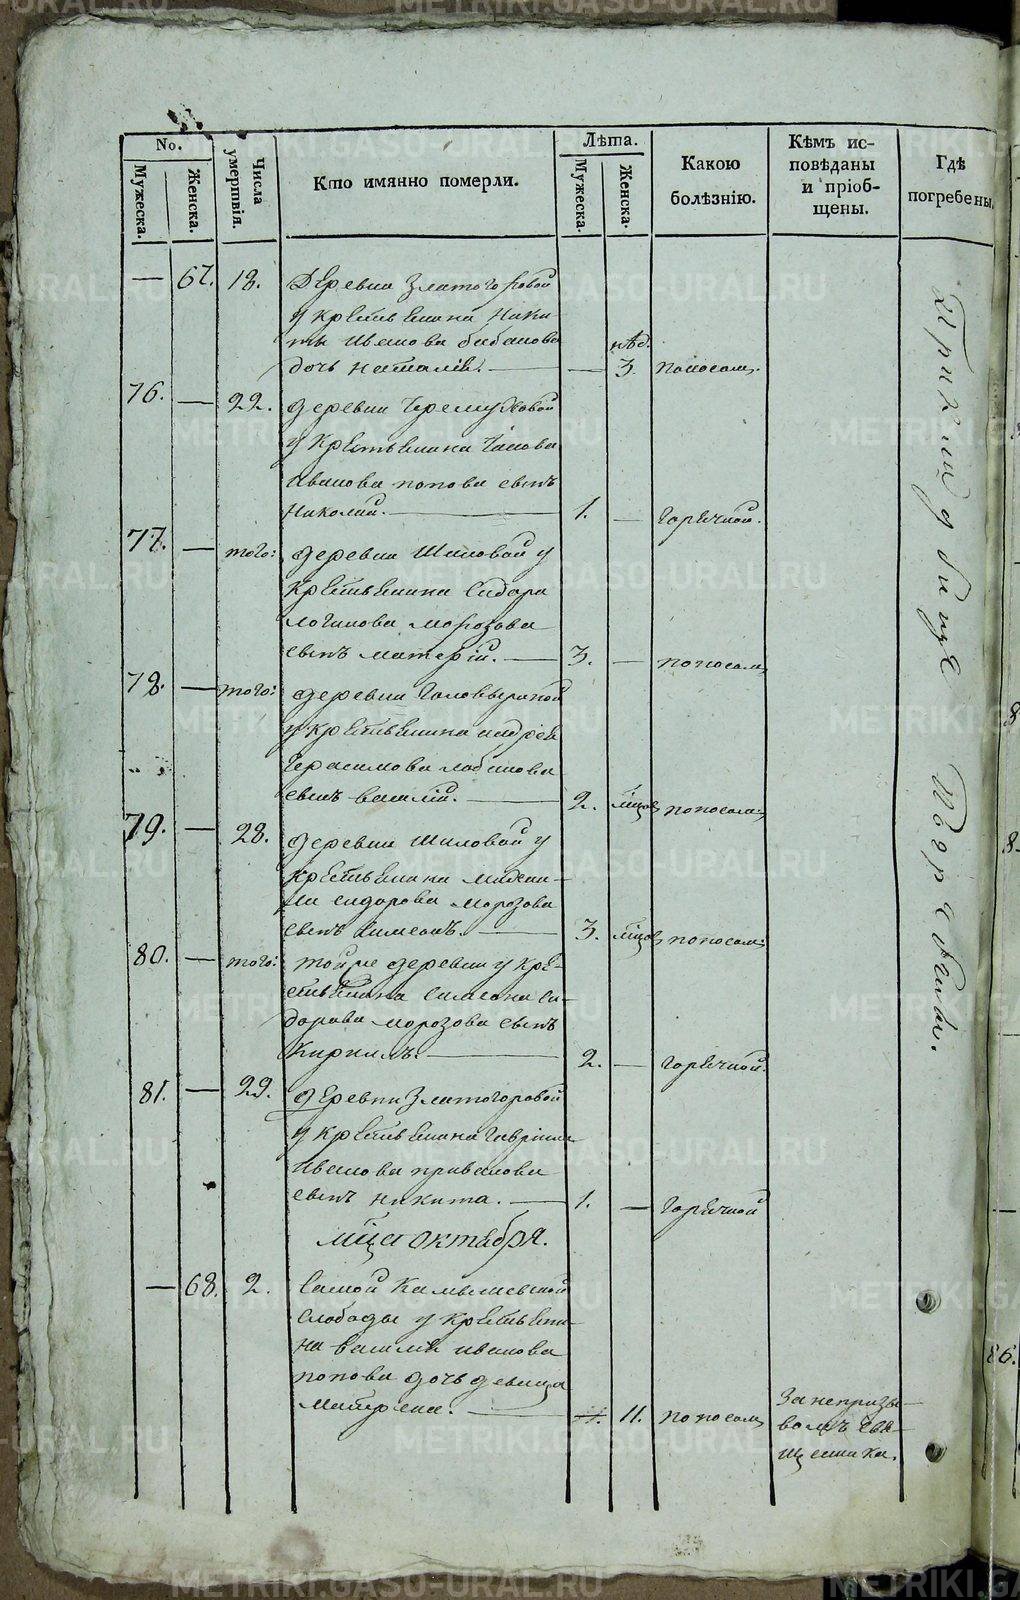 No.
Мужеска.
Женска.
Числа умертвія.
Кто имянно померли.
Лѣта.
Мужеска.
Женска.
Какою болѣзнію.
Кѣмъ исповѣданы и пріобщены.
Гдѣ погребены.
— 67. 18. Деревни Златогоровой
у крестьянина Ники
ты Иванова
дочь Наталія. — — нѣд. 3. поносом.
76. — 22. деревни Черемуховой
у крестьянина
Иванова Попова сынъ
Николай. — 1. — горячкой.
77. — того: деревни Шиловой у
крестьянина Сидора
Логинова Морозова
сынъ — 3. — поносом
78. — того: деревни
у крестьянина Андрея
Герасимова Лобанова
сынъ Василій. — 2. мѣцов поносом:
79. — 28. деревни Шиловой у
крестьянина Макси-
ма Сидорова Морозова
сынъ Симеонъ. — 3. мѣцов поносом:
80. — того: той же деревни у кре-
стьянина Симеона Си-
дорова Морозова сынъ
Кирилъ. — 2. — горячкой.
81. — 29. деревни Златогоровой
у крестьянина Гаврила
Иванова Привалова
сынъ Никита. — 1. — горячкой
мѣца октября.
— 68. 2. Самой Камышевской
слободы у крестьяни-
на Василья Иванова
Попова дочь девица
Матрена. — 11. поносом
За непризы-
вомъ свя-
щенника.
При кладбище церковном.
METRIKI.GASO-URAL.RU